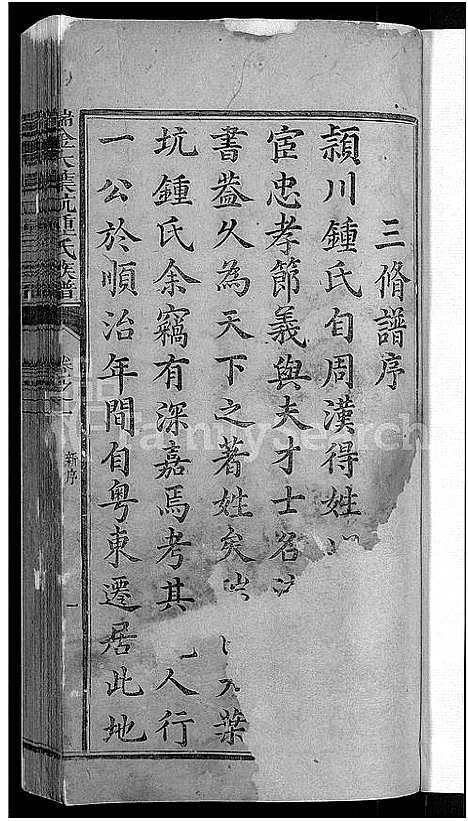 三脩譜序
頴川鍾氏自周漢得姓
宦忠孝節義與夫才士名
書葢久為天下之著姓矣 葉
坑鍾氏余竊有深嘉焉考其 人行
一公於順治年間自粵東遷居此地
瑞金大葉坑鍾氏族譜
卷之一
新序
一
FamilySearch